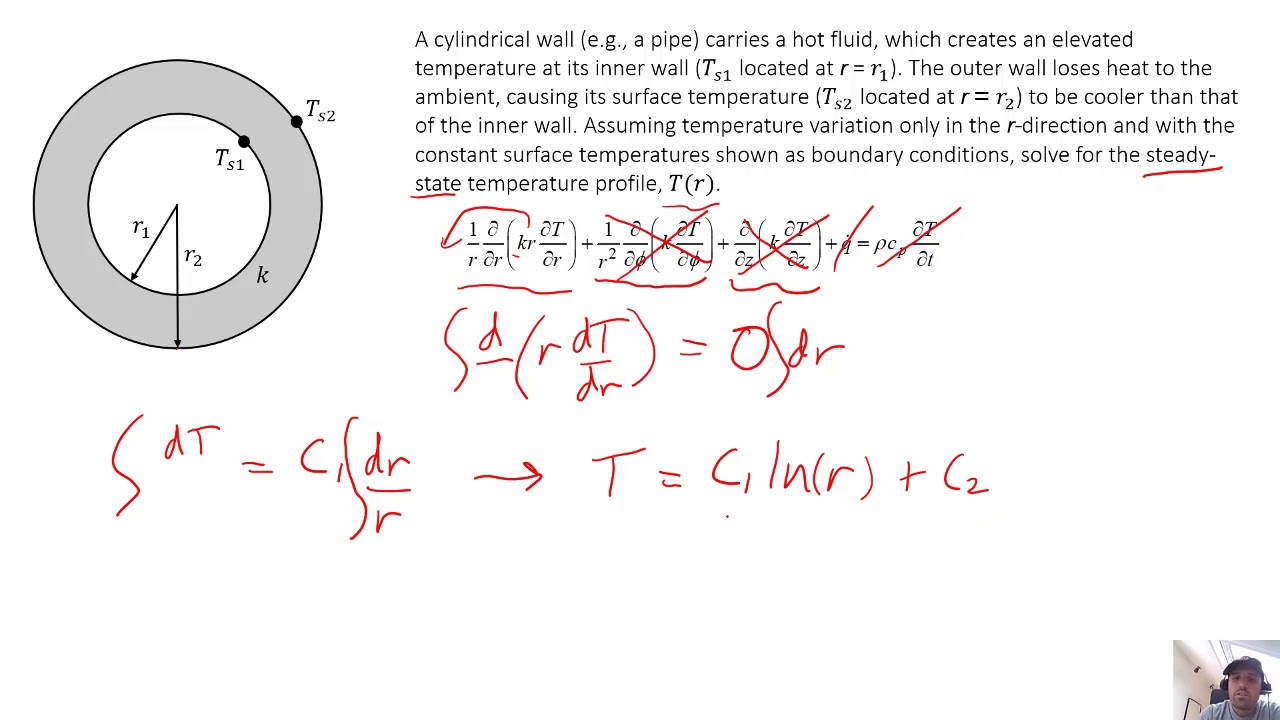 A cylindrical wall (e.g., a pipe) carries a hot fluid, which creates an elevated
temperature at its inner wall (T_{s1} located at r = r_1). The outer wall loses heat to the
ambient, causing its surface temperature (T_{s2} located at r = r_2) to be cooler than that
of the inner wall. Assuming temperature variation only in the r-direction and with the
constant surface temperatures shown as boundary conditions, solve for the steady-
state temperature profile, T(r).
T_{s2}
T_{s1}
r_1
r_2
k
1/r ∂/∂r (kr ∂T/∂r) + 1/r² ∂/∂ϕ (k ∂T/∂ϕ) + ∂/∂z (k ∂T/∂z) + q̇ = ρc_p ∂T/∂t
∫ d (r dT/dr) = 0 ∫ dr
∫ dT = C_1 ∫ dr/r → T = C_1 ln(r) + C_2